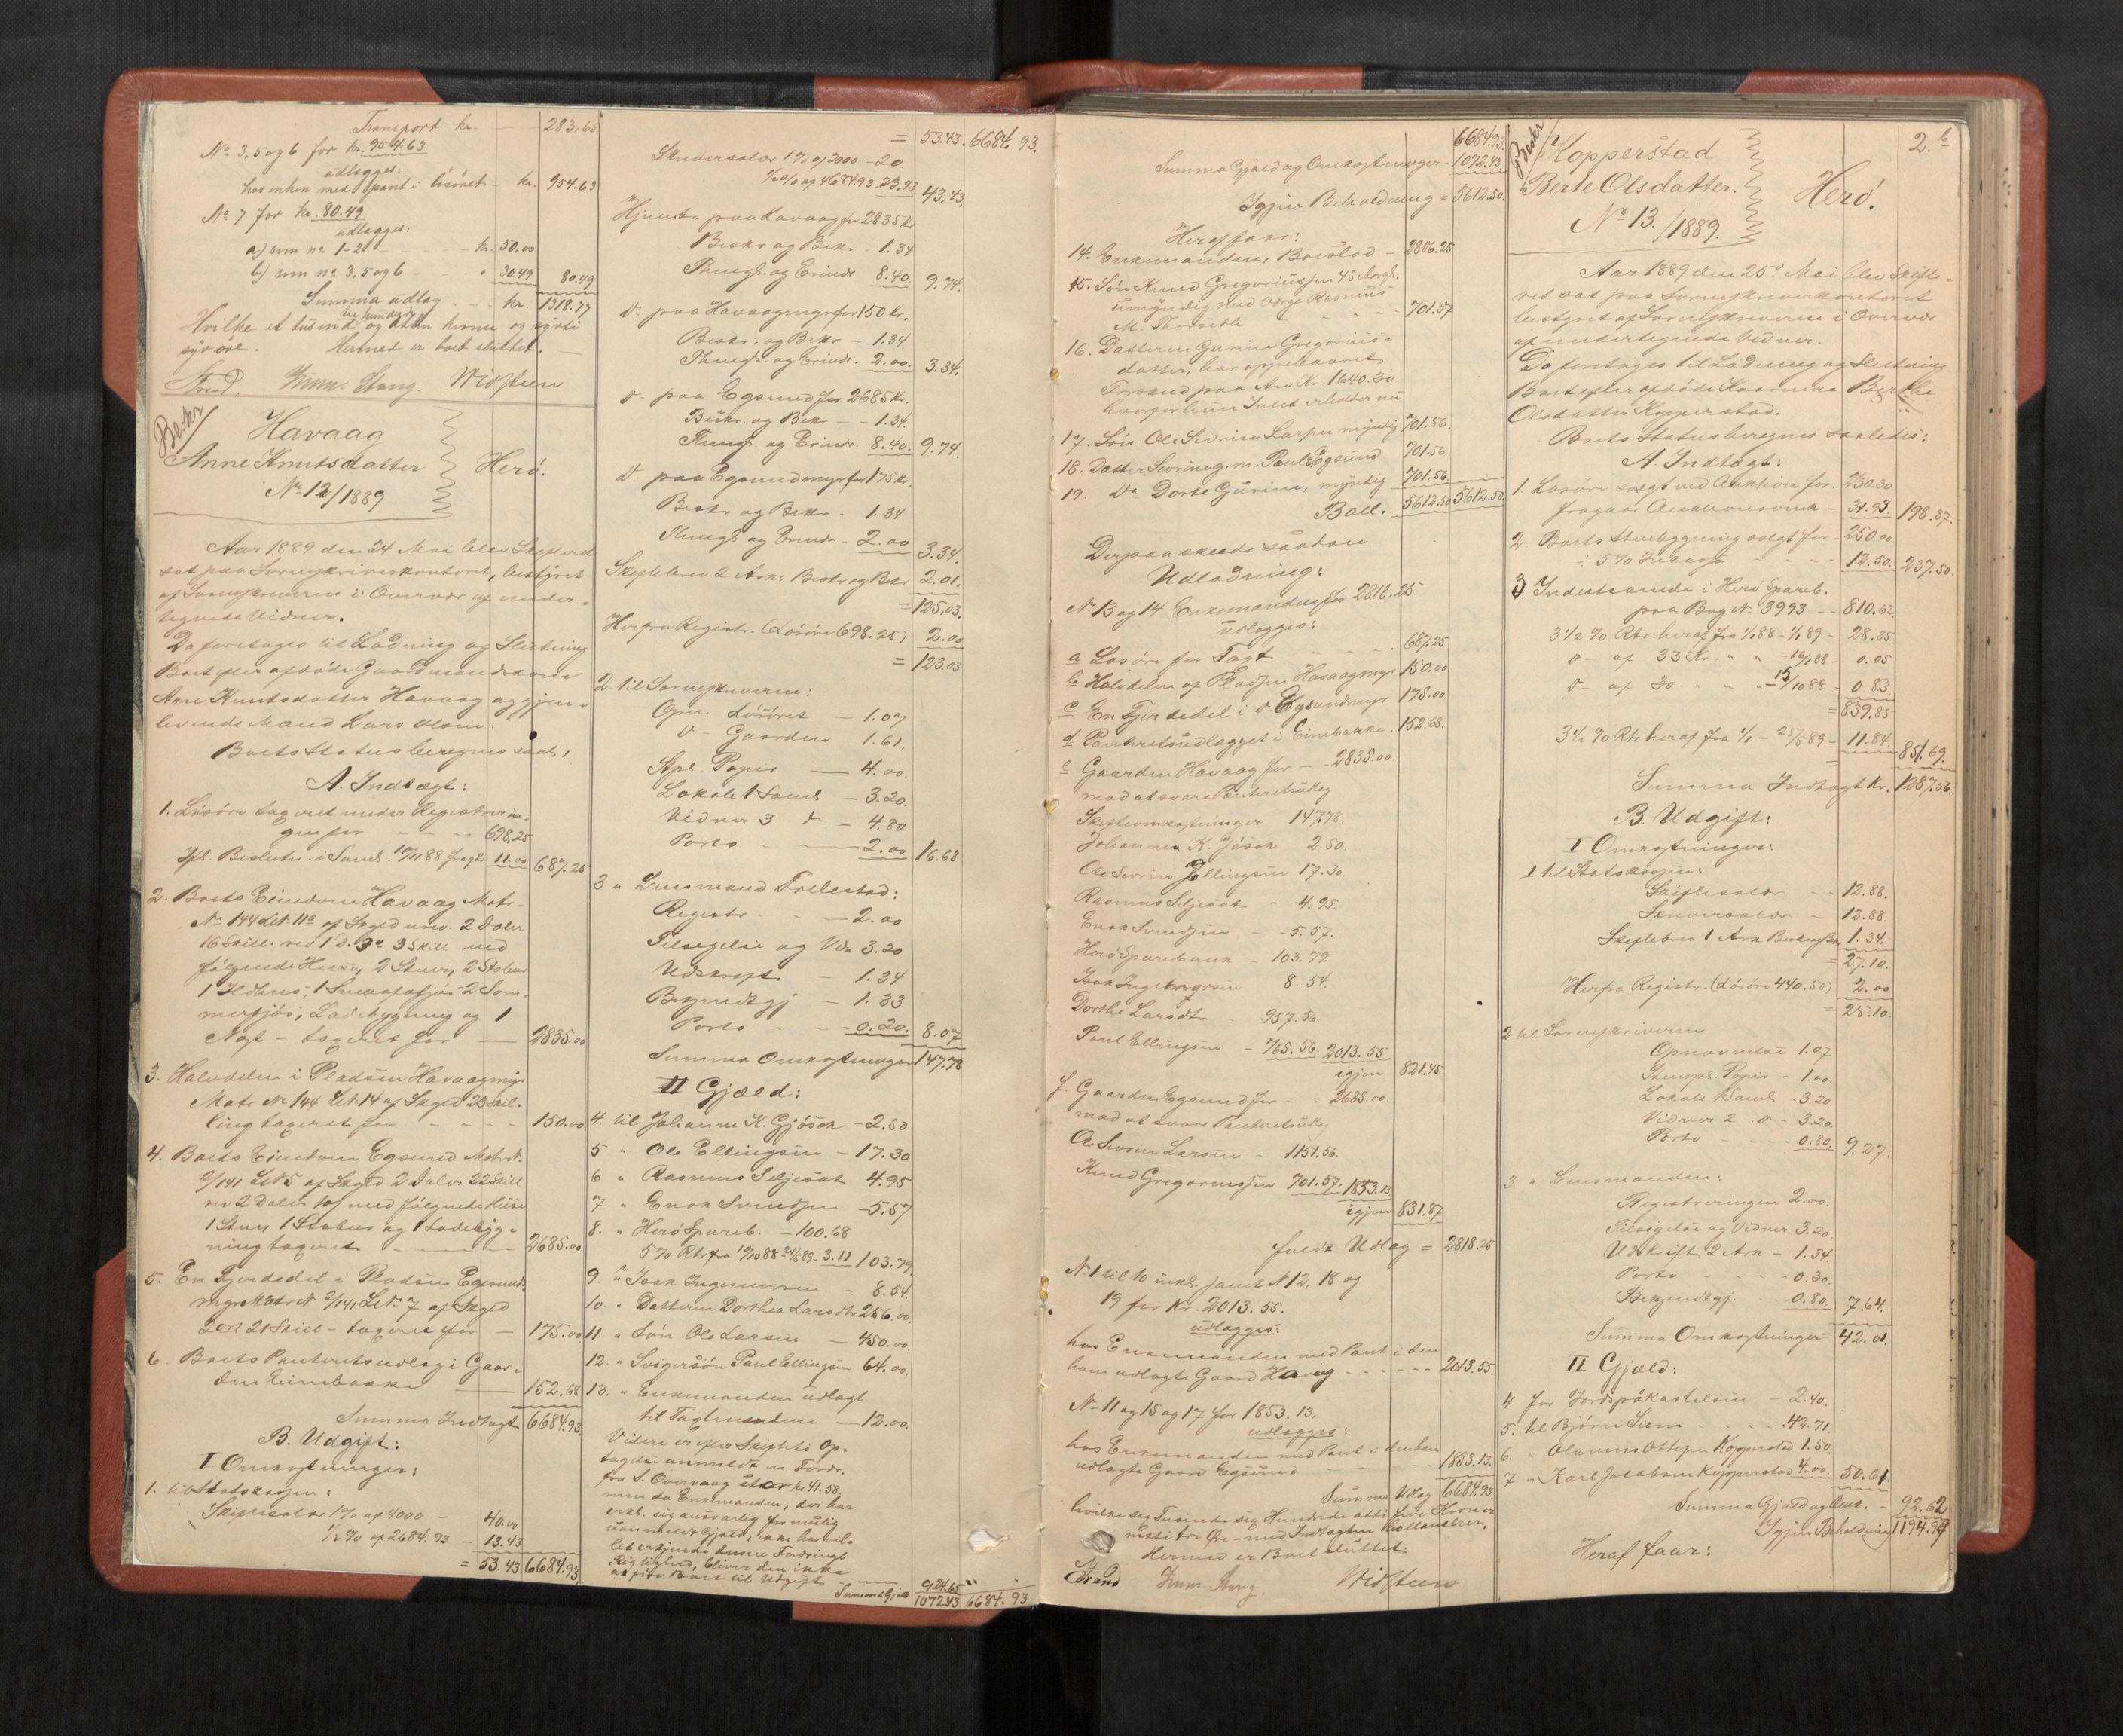 Transport kr. 283.65
No 3, 5 og 6 for kr. 954.63
udlægges:
hos enken med pant i løsøret - kr. 954.63
No 7 for kr. 80.49
udlægges:
a) som no 1-2 - kr. 50.00
b) som no 3, 5 og 6 - " 30.49 80.49
Summa udlæg - kr. 1318.77
tre hundrede
Hvilke et tusind og atten kroner og sytti
syv øre. Hermed er boet sluttet.
Beskr
Havaag
Anne Knutsdatter Herø.
No 12/1889
Aar 1889 den 24 Mai blev Skifteret
sat paa Sorenskriverkontoret, bestyret
af Sorenskriveren i Overvær af under-
tegnede Vidner.
Da foretoges til Lodning og Slutning
Boet efter afdøde Gaardmandskone
Anne Knutsdatter Havaag og gjen-
levende Mand Lars Olsen.
Boets Status beregnes saal.
A. Indtægt:
1. Løsøre taxeret under Registrerin-
gen for - 698.25
Ifl. Beslutn. i Saml. 10/11 88 fragaar 11.00 687.25
2. Boets Eiendom Havaag Matr-
No 144 LNo 11a af Skyld urev. 2 Daler
16 Skill. rev 1 D. 3 Skill med
følgende Huse, 2 Stuer, 2 Stabur
1 Ildhus, 1 2 Som-
merfjøs, Ladebygning og 1
Nøst - taxeret for - 2835.00
3. Halvdelen i Pladsen Havaagmyr
Matr No 144 LNo 14 af Skyld 23 Skil-
ling taxeret for - 150.00
4. Boets Eiendom Egsund Matr N.
LNo 5 af Skyld 2 Daler 22 Skill
rev 2 Daler med følgende Huse
1 Stue 1 Stabur og 1 Ladebyg-
ning taxeret - 2685.00
5. En Fjerdedel i Pladsen Egsund-
myr Matr N 2/141 LNo 7 af Skyld
21 Skill - taxeret for - 175.00
6. Boets Panteretsudlæg i Gaar-
den Einebakke - 152.68
Summa Indtægt 6684.93
B. Udgift:
I Omkostninger:
1. til Statskassen:
Skiftesalær 1% af 4000 - 40.00
1/2% af 2684.93 - 13.43
= 53.43 6684.93
= 53.43. 6684.93.
Skriversalær 1% af 2000 - 20
1/2% af 4684.93 - 23.43 43.43
Hjemler paa Havaag for 2835 kr
Beskr og Bekr. 1.34
Thingl. og Erindr. 8.40. 9.74.
do paa Havaagmyr for 150 kr.
Beskr. og Bekr - 1.34.
Thingl. og Erindr. 2.00. 3.34.
do paa Egsund for 2685 kr.
Beskr. og Bekr - 1.34.
Thingl. og Erindr. 8.40. 9.74.
do paa Egsundmyr for 175 kr.
Beskr og Bekr - 1.34
Thingl og Erindr - 2.00 3.34.
Skiftebrev 2 Ark: Beskr og Bekr 2.01.
= 125.03.
Herfra Registr. (Løsøre 698.25) 2.00
= 123.03
2 til Sorenskriveren:
Opn. Løsøret - 1.07
do - Gaarden 1.61.
Stpl. Papir - 4.00.
Lokale 1 Saml - 3.20.
Vidner 3 do - 4.80
Porto - 2.00 16.68
3 " Lensmand Frilestad:
Registr. - 2.00
Tilsigelse og Vidn 3.20
Udskrift - 1.34
Bekjendtgj - 1.33
Porto - 0.20. 8.07
Summa Omkostninger 147.78
II Gjæld:
4. til Johanne K. Gjøsok - 2.50
5 " Ole Ellingsen - 17.30
6 " Rasmus Seljeset 4.95
7 " Enok Svendsen - 5.57
8. " Herø Spareb. - 100.68
5% Rtr fra 10/10 88 - 25/5 89 - 3.11 103.79.
9. " Isak Ingemorsen - 8.54.
10. " Datteren Dorthea Larsdtr 256.00.
11. " Søn Ole Larsen - 450.00.
12. " Svigersøn Paul Ellingsen 64.00.
13. " Enkemanden udlagt
til Taxtmændene - 12.00.
Videre er efter Skiftets Op-
tagelse anmeldt en Fordr.
fra S. Overvaag stor kr 41.58,
men da Enkemanden, der har
erkl. sig ansvarlig for mulig
uanmeldt Gjæld, ikke har vil-
let erkjende denne Fordrings
Rigtighed, bliver den ikke
at føre Boet til Udgift.
Summa Gjæld 924.65
1072.43 6684.93
6684.93.
Summa Gjæld og Omkostninger - 1072.43
Igjen Beholdning = 5612.50.
Heraf faar:
14. Enkemanden, Boeslod - 2806.25
15. Søn Knud Gregoriussen 45 Aargl.
umyndig med Værge Rasmus
M. - 701.57
16. Datteren Gurine Gregorius-
datter, har oppebaaret
Forskud paa Arv Kr. 1640.30
hvorfor hun Intet erholder nu
17. Søn Ole Severin Larsen myndig 701.56.
18. Datter Severine g. m. Paul Egsund 701.56.
19. Do Dorte Gurine, myndig 701.56.
Ball. 5612.50 5612.50
Derpaa skeede saadan
Udlodning:
N 13 og 14 Enkemanden for 2818.25
udlægges:
a Løsøre for Taxt - 687.25
b Halvdelen af Pladsen Havaagmyr 150.00.
c En Fjerdedel i do Egsundmyr 175.00.
d Panteretsudlægget i Einebakke. 152.68.
e Gaarden Havaag for - 2835.00.
mod at svare Panteretsudlæg
Skifteomkostninger 147.78.
Johanne K. Jøsok 2.50.
Ole Severin Ellingsen 17.30
Rasmus Seljeset - 4.95.
Enok Svendsen - 5.57.
Herø Sparebank - 103.79.
Isak Ingebrigtsen 8.54.
Dorthe Larsdtr - 957.56.
Paul Ellingsen - 765.56. 2013.55
igjen 821.45
f. Gaarden Egsund for - 2685.00.
mod at svare Panteretsudlæg
Ole Severin Larsen - 1151.56.
Knud Gregoriussen 701.57. 1853.13
igjen 831.87
fuldt Udlæg = 2818.25
N 1 til 10 inkl. samt N 12, 18 og
19 for Kr. 2013.55.
udlægges:
hos Enkemanden med Pant i den
ham udlagte Gaard Havaag - 2013.55.
No 11 og 15 og 17 for 1853.13.
udlægges:
hos Enkemanden med Pant i den ham
udlagte Gaard Egsund - 1853.13.
Summa Udlæg 6684.93
hvilke sex Tusinde sex Hundrede otti fire Kroner
nitti tre Øre - med Indtægten ballancerer.
Hermed er Boet sluttet.
2.b
Beskr
Kopperstad
Berte Olsdatter. Herø.
No 13./1889.
Aar 1889 den 25de Mai blev Skifte-
ret sat paa Sorenskriverkontoret
bestyret af Sorenskriveren i Overvær
af undertegnede Vidner.
Da foretoges til Lodning og Slutning
Boet efter afdøde Kaarenke Berthe
Olsdatter Kopperstad.
Boets Status beregnes saaledes:
A. Indtægt:
1. Løsøre solgt ved Auktion for 230.30
fragaar 31.93 198.37.
2. Boets Stuebygning solgt for - 250.00
÷ 5% - 12.50. 237.50.
3. Indestaaende i Herø Spareb.
paa Bog N. 3993 - 810.62
3 1/2 % Rtr. heraf fra 1/1 88 - 1/1 89 - 28.35
do - af 33 Kr. " - 16/1 88 - 0.05
do - af 30 - " " - 15/10 88 - 0.83.
= 839.85
3 1/2 % Rtr heraf fra 1/1 - 25/5 89 - 11.84. 851.69.
Summa Indtægt Kr. 1287.56.
B. Udgift:
I Omkostninger:
1 til Statskassen:
Skiftesalær - 12.88.
Skriversalær - 12.88.
Skiftebrev 1 Ark Beskr og Bekr 1.34.
= 27.10.
Herfra Registr. (Løsøre 440.50) 2.00
= 25.10.
2 til Sorenskriveren
Opnævnelse 1.07
Stempl. Papir - 1.00
Lokale 1 Saml - 3.20.
Vidner 2 do - 3.20.
Porto - 0.80. 9.27.
3 " Lensmanden:
Registreringen 2.00.
Tilsigelse og Vidner 3.20.
Udskrift 2 Ark - 1.34.
Porto - 0.30.
Bekjendtgj. - 0.80. 7.64.
Summa Omkostninger = 42.01.
II Gjæld:
4 for Jordspåkastelsen - 2.40.
5. til Bjørn Siem - 42.71.
6. " Olaus Ottesen Kopperstad 1.50.
7 " Karl Jacobsen Kopperstad 4.00. 50.61.
Summa Gjæld og Omk. - 92.62
Igjen Beholdning 1194.94
Heraf faar: